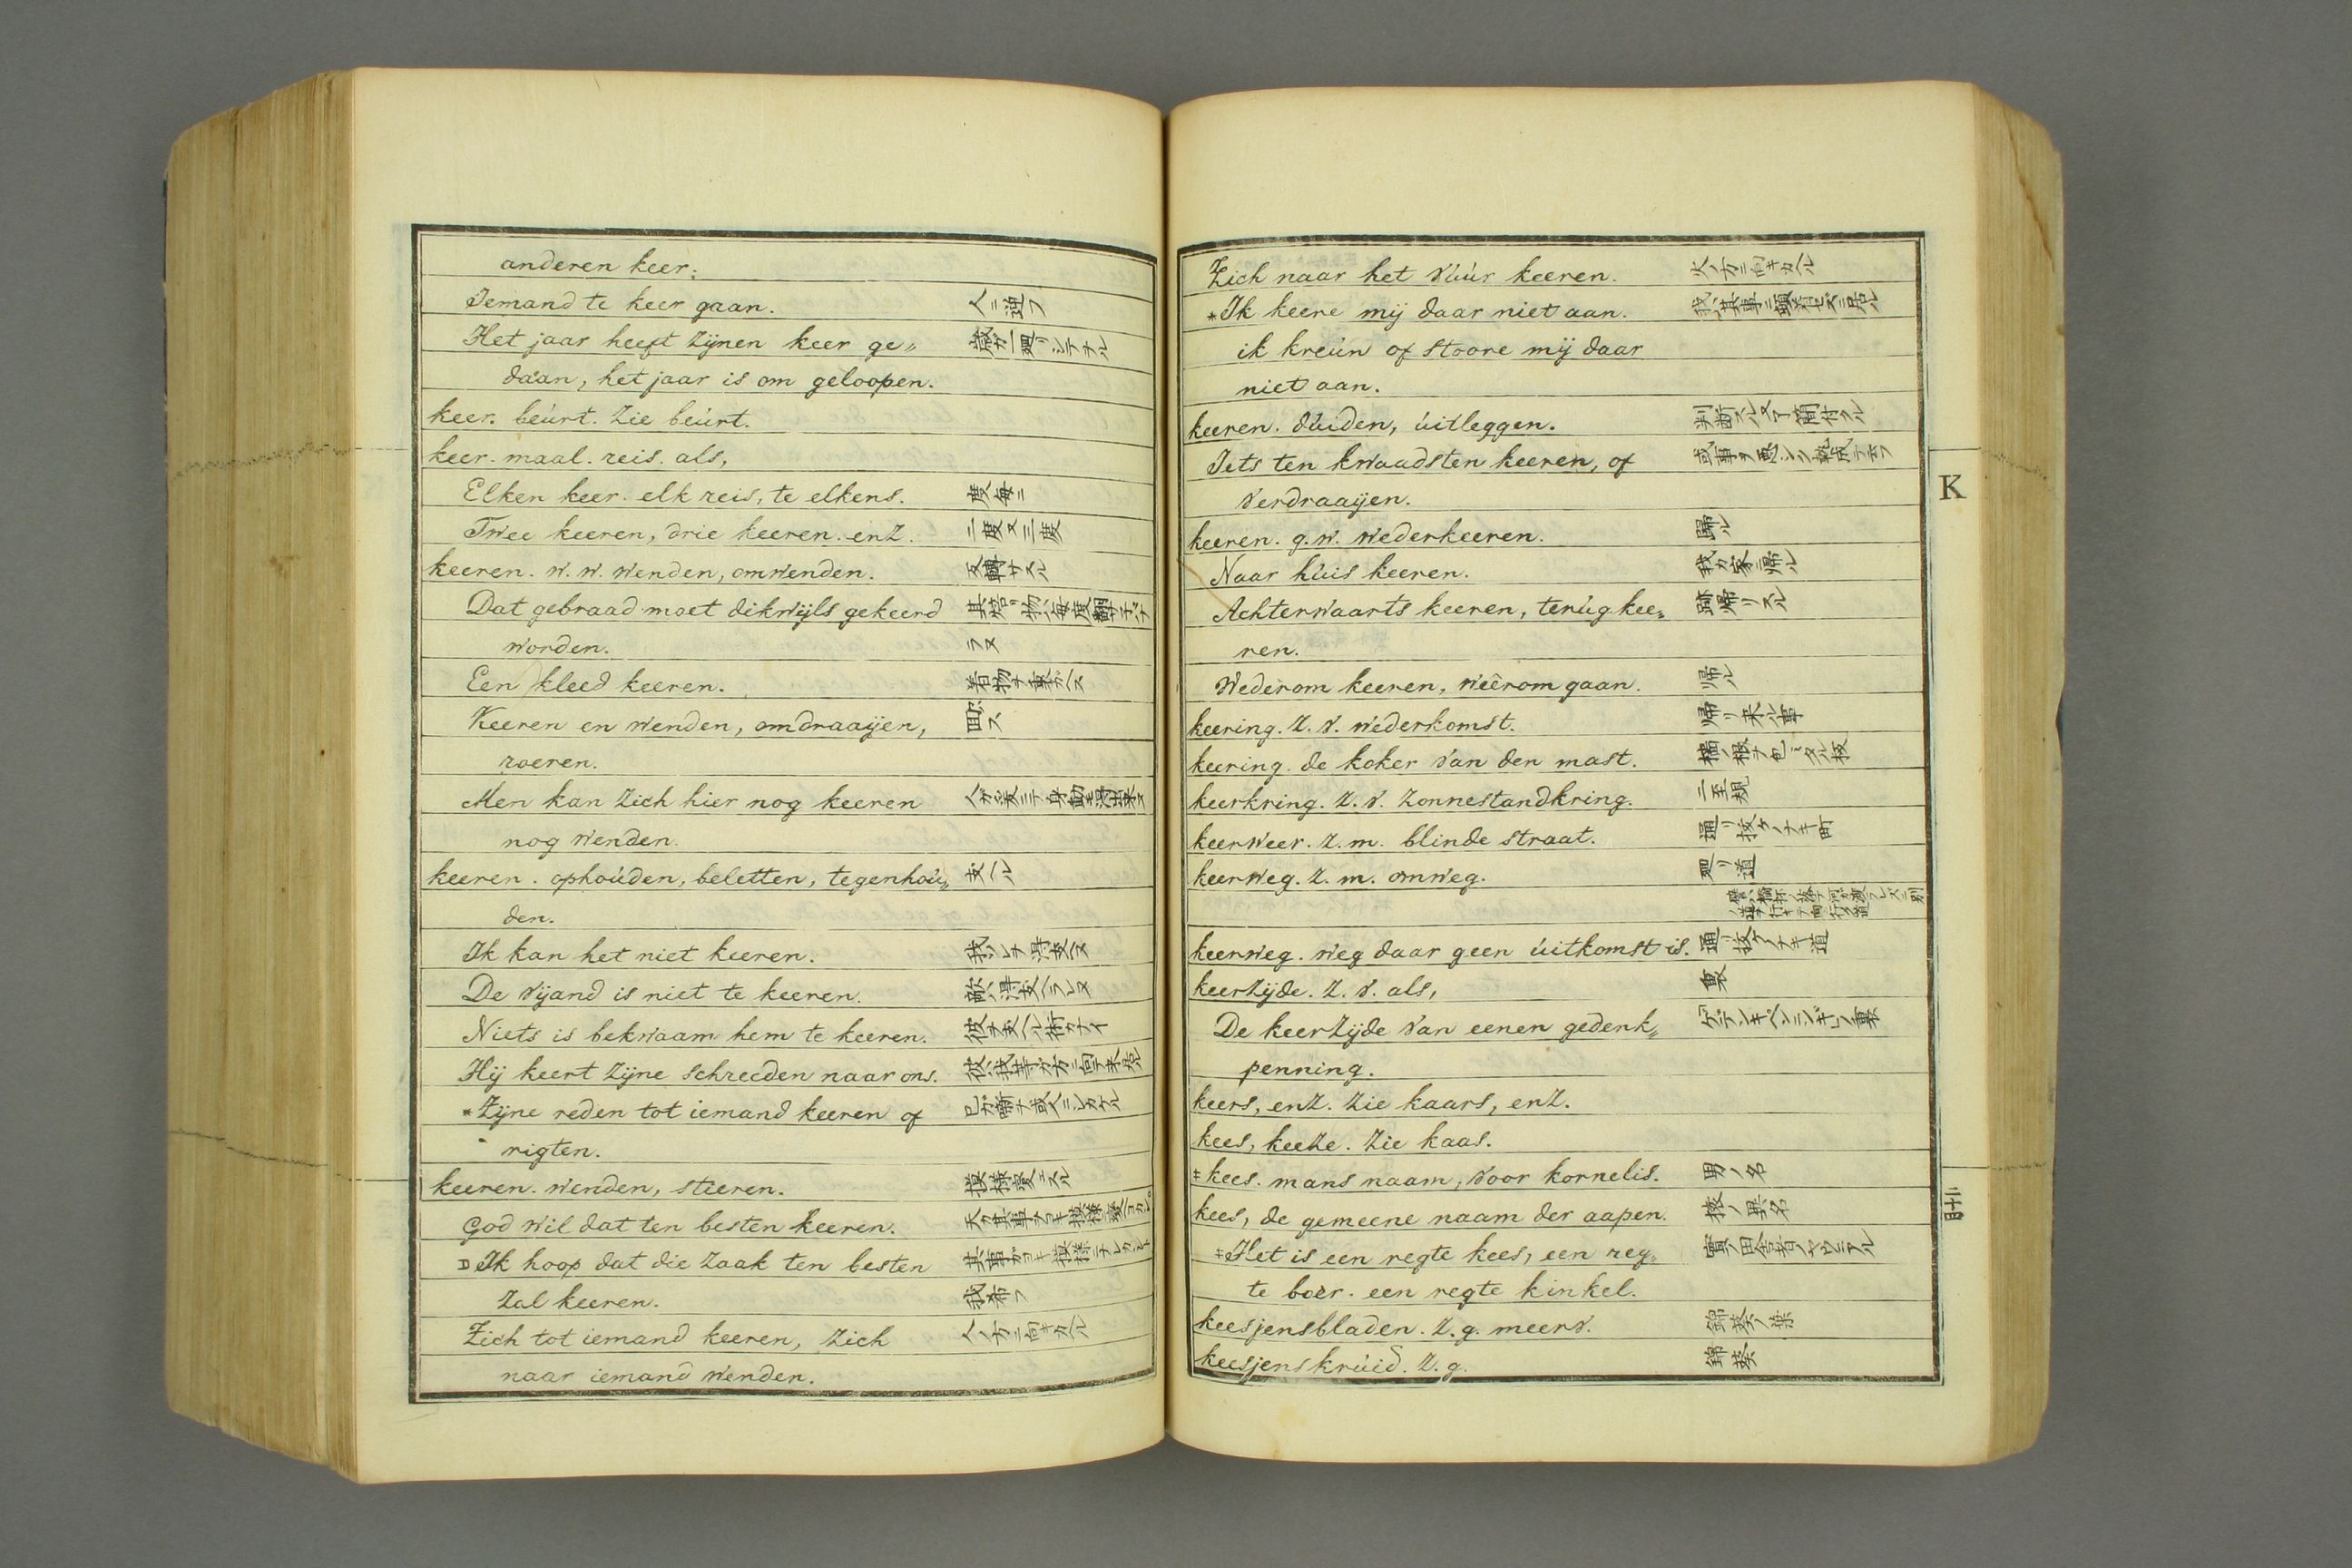 anderen keer.
Iemand te keer gaan. 人ニ逆フ
Het jaar heeft zijnen keer ge„ 歳ガ一廻リシテアル
daan, het jaar is om geloopen.
keer. beúrt. zie beúrt.
keer. maal. reis. als,
Elken keer. elk reis, te elkens. 度毎ニ
Twee keeren, drie keeren. enz. 二度又三度
keeren. w. w. wenden, omwenden. 反轉サスル
Dat gebraad moet dikwijls gekeerd
worden. ラヌ
Een kleed keeren. 着物ヲ裏カヘス
Keeren en wenden, omdraaijen, 回ス
roeren.
Men kan zich hier nog keeren
nog wenden.
keeren. ophoúden, beletten, tegenhoú„ 支ヘル
den.
Ik kan het niet keeren. 我ソレヲ得支ヘヌ
De vijand is niet te keeren. 敵ハ得支ヘラレヌ
Niets is bekwaam hem te keeren. 彼ヲ支ヘル術ガナイ
Hij keert zijne schreeden naar ons.
*Zijne reden tot iemand keeren of
rigten.
keeren. wenden, stieren. 模様変ニスル
God wil dat ten besten keeren.
Ik hoop dat die zaak ten besten
zal keeren. 我希フ
Zich tot iemand keeren, zich 人ノ方ニ向キカヘル
naar iemand wenden.
Zich naar het vúúr keeren. 火ノ方ニ向キカヘル
*Ik keere mij daar niet aan.
ik kreún of stoore mij daar
niet aan.
keeren. dúiden, úitleggen. 判断スル又了簡付クル
Iets ten kwaadsten keeren, of
verdraaijen.
keeren. g. w. wederkeeren. 歸ル
Naar húis keeren. 我ガ家ニ帰ル
Achterwaarts keeren, terúg kee„ 跡帰リスル
ren.
Wederom keeren, weêrom gaan. 帰ル
keering. z. v. wederkomst. 帰リ来ル事
keering. de koker van den mast. 檣ノ根ヲ包ミタル板
keerkring. z. v. zonnestandkring. 二至規
keerweer. z. m. blinde straat. 通リ抜ケノナキ町
keerweg. z. m. omweg. 廻リ道
keerweg. weg daar geen úitkomst is. 通リ抜ケノナキ道
keerzijde. z. v. als, 裏
De keerzijde van eenen gedenk„ ゲデンキペンニンギノ裏
penning.
keers, enz. zie kaars, enz.
kees, keeze. zie kaas.
‡kees. mans naam, voor kornelis. 男ノ名
kees, de gemeene naam der aapen. 猿ノ異名
‡Het is een regte kees, een reg„
te boer. een regte kinkel.
keesjensbladen. z. g. meerv. 錦葵ノ葉
keesjenskrúid. z. g. 錦葵
K